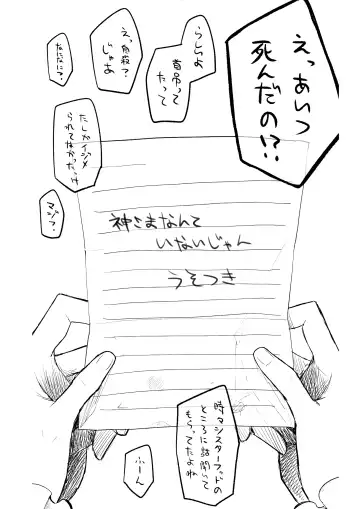 えっあいつ
死んだの!?
らしいよ
首吊って
たって
え、自殺?
じゃあ
なになに?
たしかイジメ
られてなかったっけ
マジ?
神さまなんて
いないじゃん
うそつき
時々シスターフッドの
ところに話聞いて
もらってたよね
ふーん